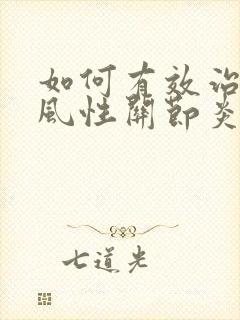 如何有效
風性關節炎
七道光